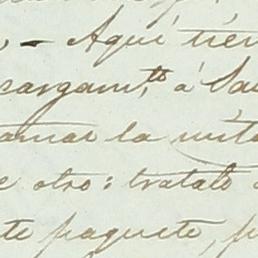 - Aquí tien
cargam.to á Sa
tomar la mita
e otro: tratalo
te paquete, p